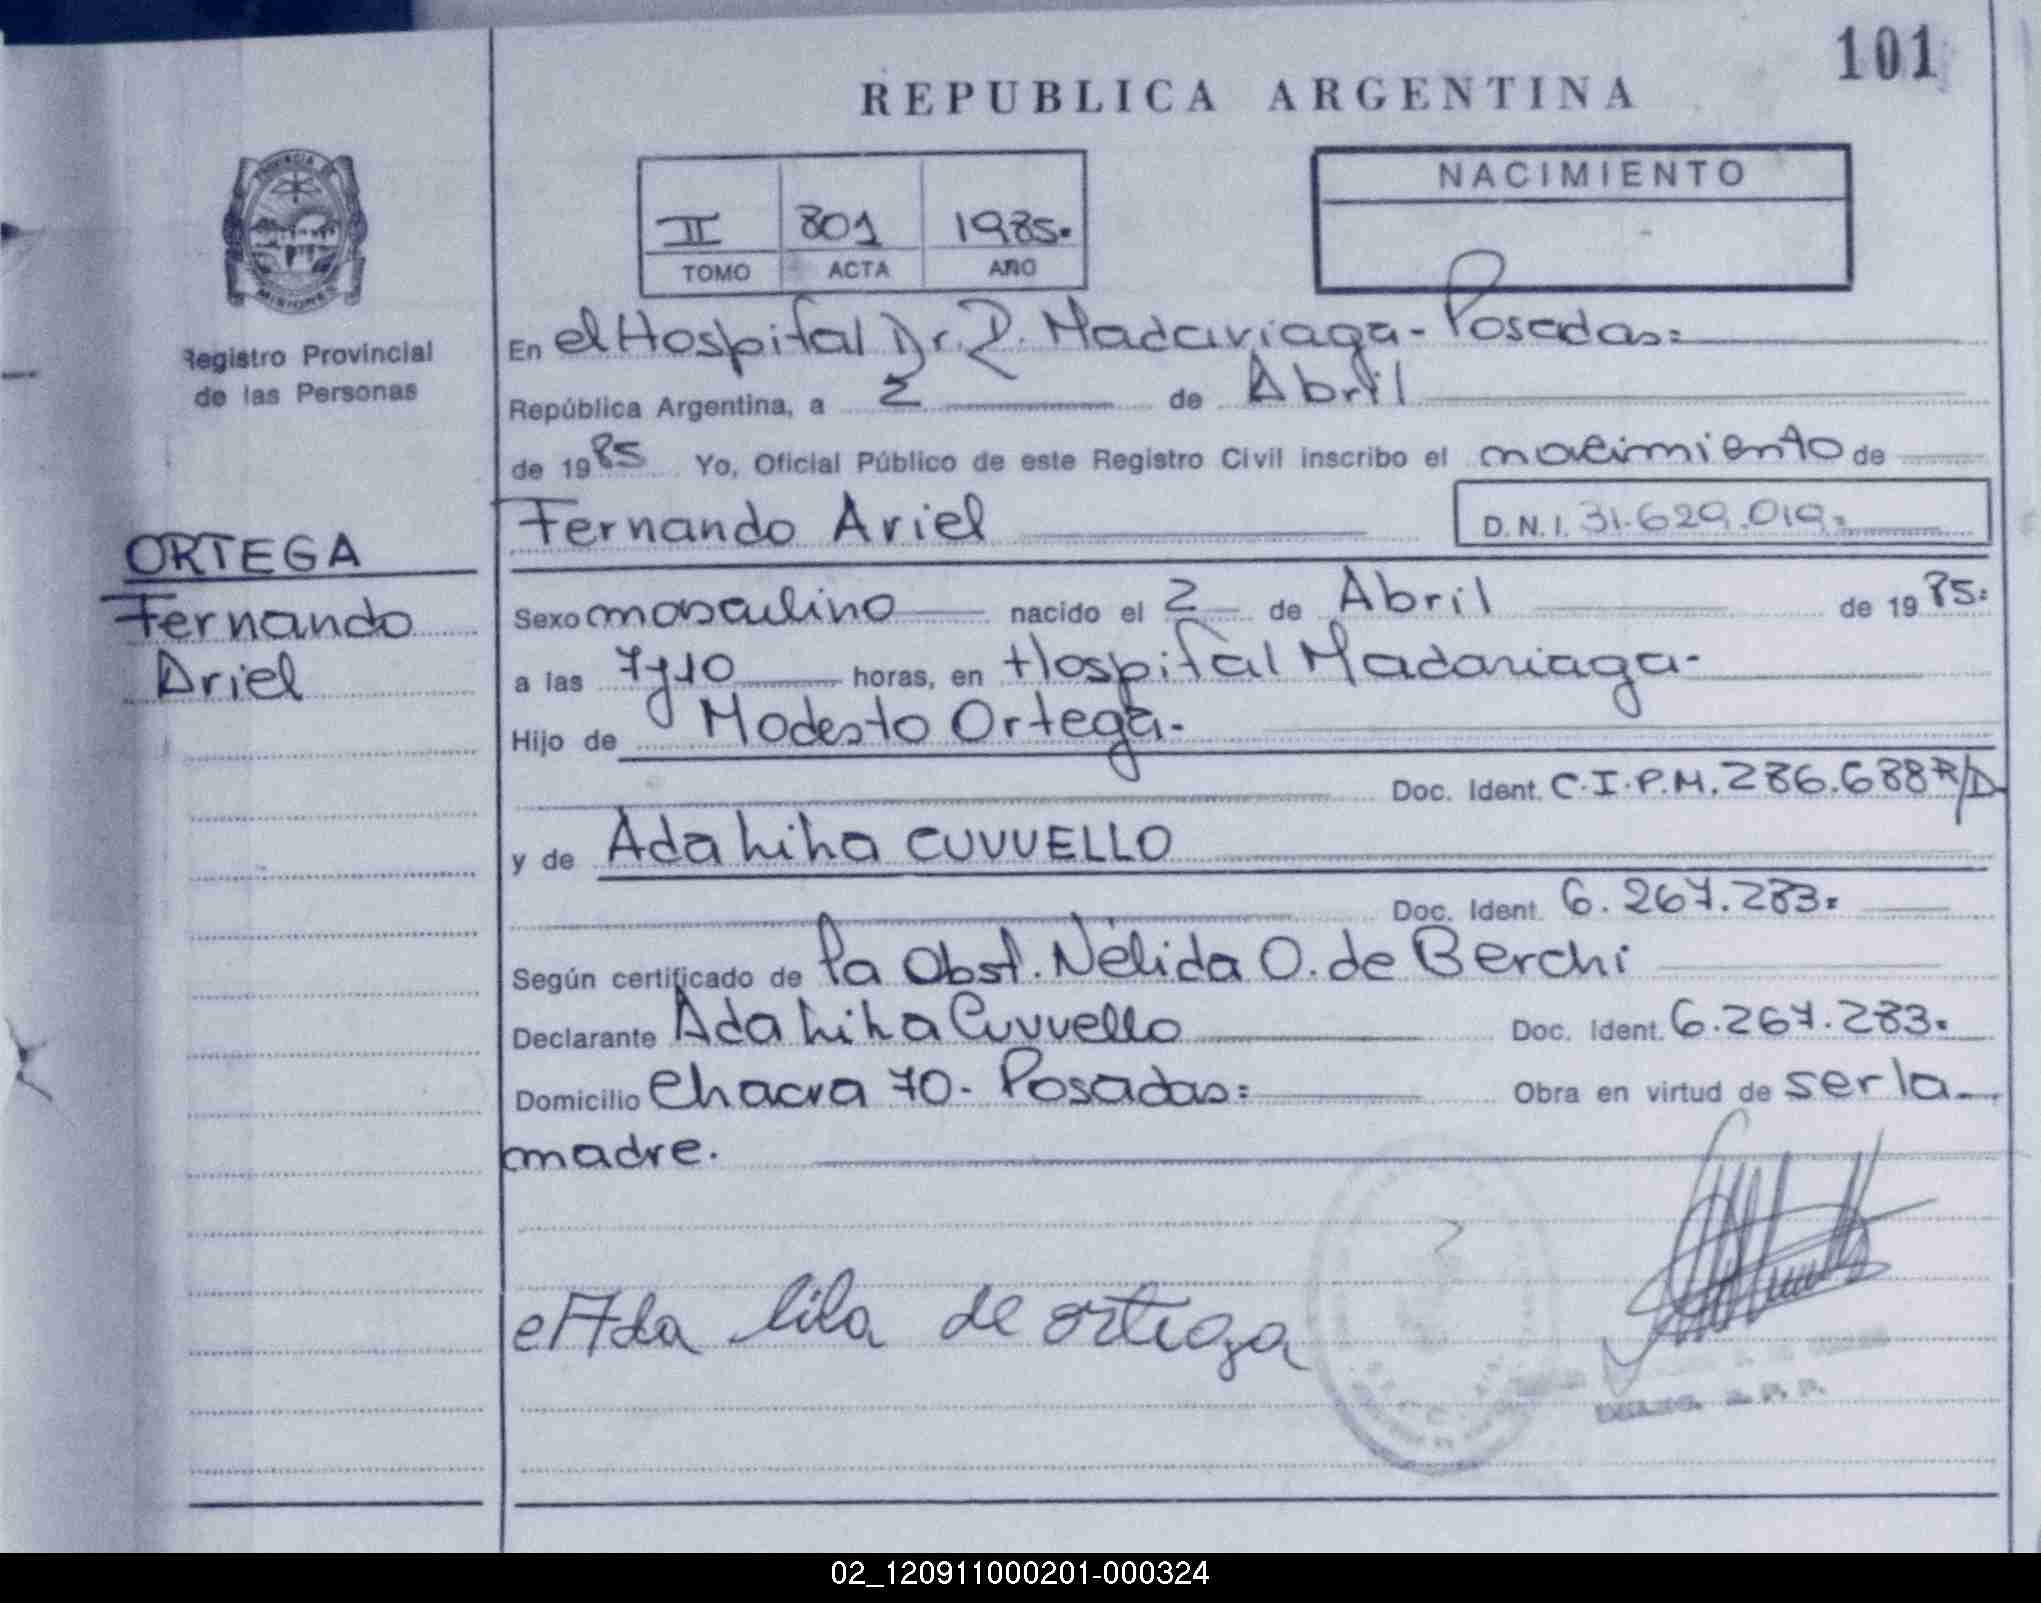 101
REPUBLICA ARGENTINA
NACIMIENTO
II 801 1985.
TOMO ACTA AÑO
PROVINCIA DE
MISIONES
Registro Provincial
de las Personas
En el Hospital Dr. R. Madariaga - Posadas=
República Argentina, a 2 de Abril
de 1985 Yo, Oficial Público de este Registro Civil inscribo el nacimiento de
Fernando Ariel D.N.I. 31.629.019=
ORTEGA
Fernando
Ariel
Sexo masculino nacido el 2 de Abril de 1985=
a las 7y10 horas, en Hospital Madariaga-
Hijo de Modesto Ortega-
Doc. Ident. C.I.P.M. 286.688 R/D
y de Ada Lila CUVVELLO
Doc. Ident. 6.267.283=
Según certificado de la Obst. Nélida O. de Berchi
Declarante Ada Lila Cuvvello Doc. Ident. 6.267.283=
Domicilio Chacra 70- Posadas= Obra en virtud de ser la
madre.
Ada lila de ortega
02_120911000201-000324